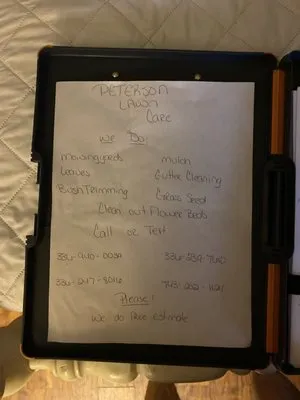 PETERSON
LAWN
Care
We Do!
mowing yards mulch
Leaves Gutter Cleaning
Bush Trimming Grass Seed
Clean out Flower Beds
Call or Text
336-247-8016
Please!
we do free estimate